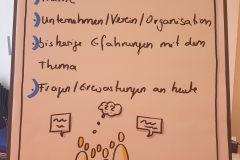 Unternehmen/Verein/Organisation
bisherige Erfahrungen mit dem
Thema
Fragen/Erwartungen an heute